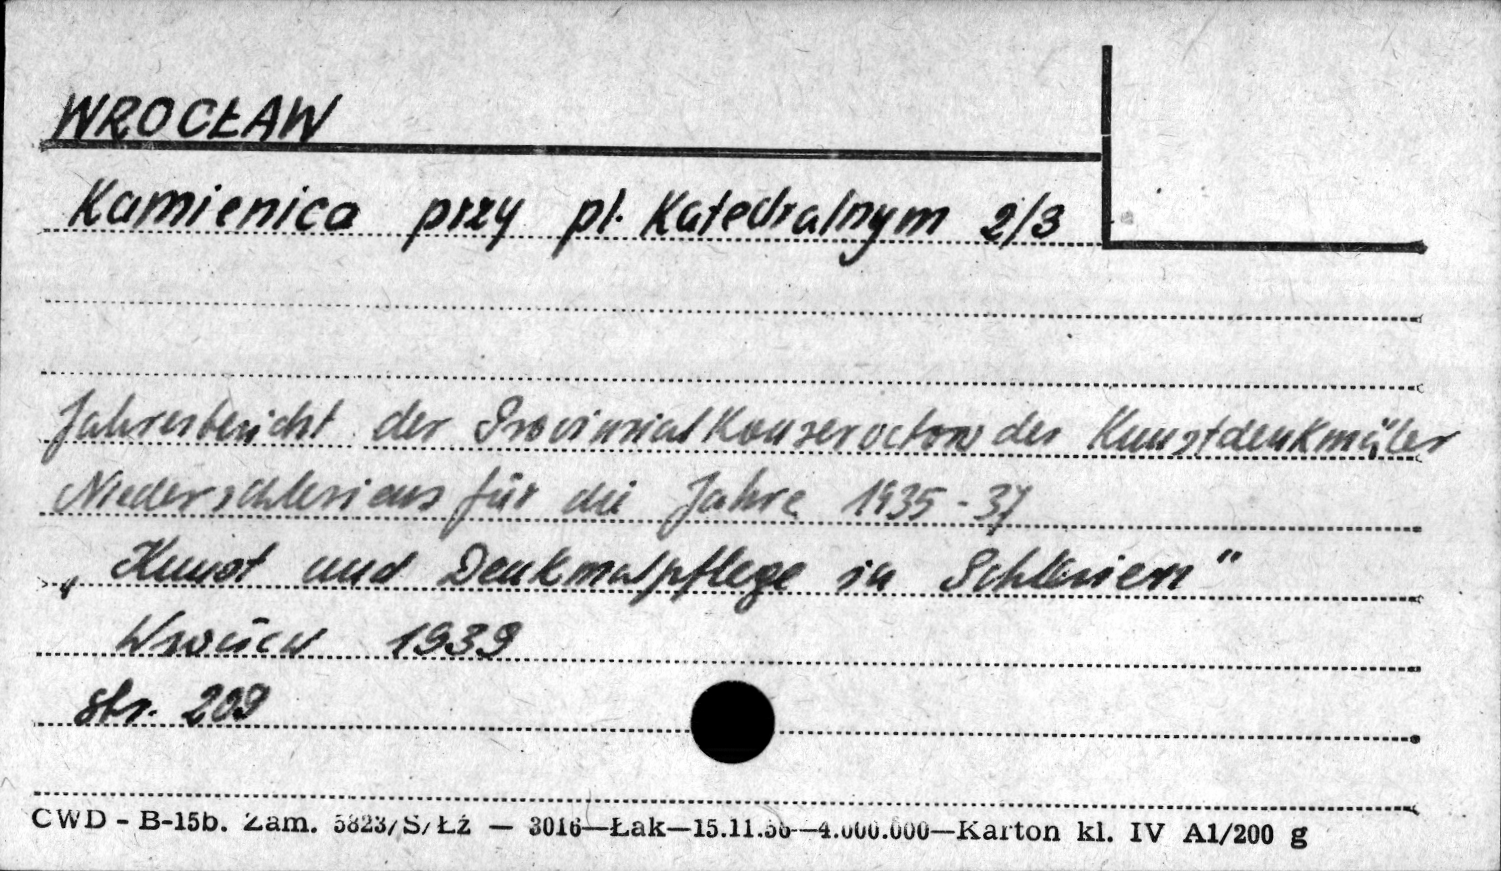 WROCŁAW
Kamienica przy pl. Katedralnym 2/3
Jahresbericht der Provinzial Konservators der Kunstdenkmäler
Niederschlesiens für die Jahre 1935-37
„Kunst und Denkmalpflege in Schlesien"
1939
str. 209
CWD - B-15b. Zam. 5823/S/Łż — 3016—Łak—15.11.56—4.000.000—Karton kl. IV A1/200 g